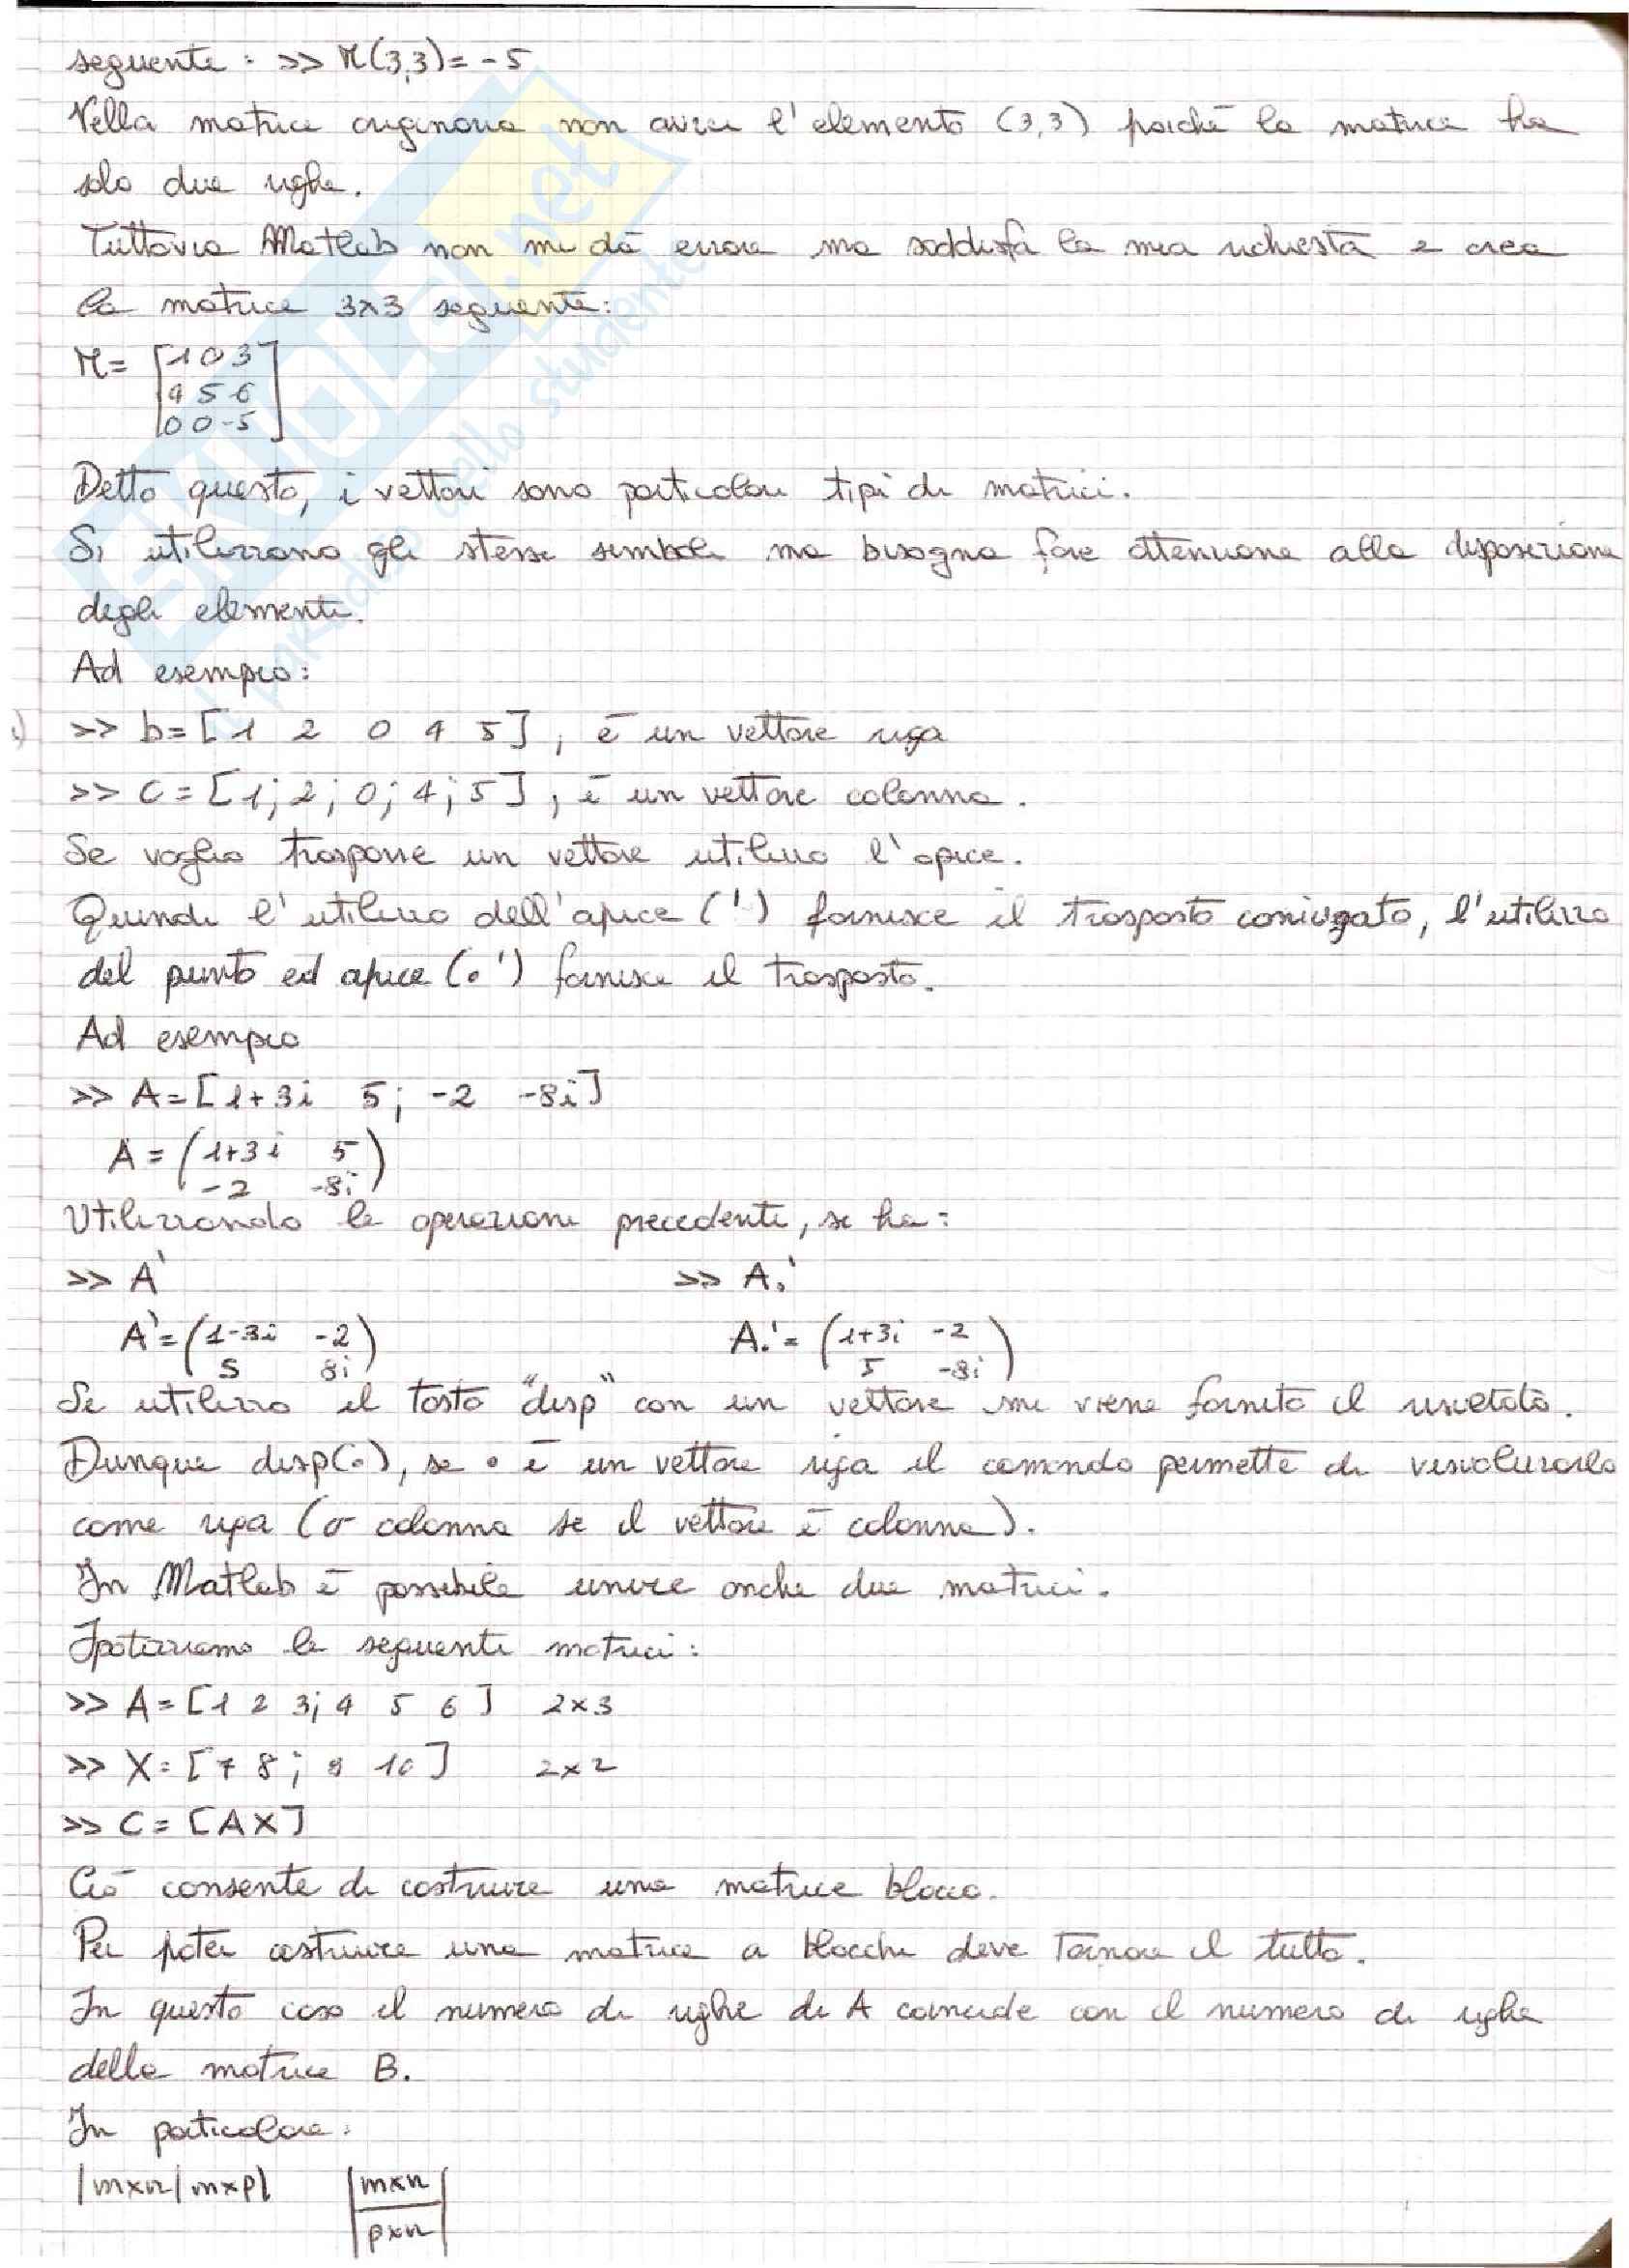 seguente: >> M(3,3)= -5
Nella matrice originaria non avrei l'elemento (3,3) poiché la matrice ha
solo due righe.
Tuttavia Matlab non mi dà errore ma soddisfa la mia richiesta e crea
la matrice 3x3 seguente:
M= [1 0 3
4 5 6
0 0 -5]
Detto questo, i vettori sono particolari tipi di matrici.
Si utilizzano gli stessi simboli ma bisogna fare attenzione alla disposizione
degli elementi.
Ad esempio:
>> b=[1 2 0 4 5], è un vettore riga
>> C=[1; 2; 0; 4; 5], è un vettore colonna.
Se voglio trasporre un vettore utilizzo l'apice.
Quindi l'utilizzo dell'apice (') fornisce il trasposto coniugato, l'utilizzo
del punto ed apice (.') fornisce il trasposto.
Ad esempio
>> A=[1+3i 5; -2 -8i]
A = (1+3i 5
-2 -8i)
Utilizzando le operazioni precedenti, si ha:
>> A' >> A.'
A'=(1-3i -2 A.'= (1+3i -2
5 8i) 5 -8i)
Se utilizzo il tasto "disp" con un vettore mi viene fornito il risultato.
Dunque disp(•), se • è un vettore riga il comando permette di visualizzarlo
come riga (o colonna se il vettore è colonna).
In Matlab è possibile unire anche due matrici.
Ipotizziamo le seguenti matrici:
>> A=[1 2 3; 4 5 6] 2x3
>> X=[7 8; 9 10] 2x2
>> C=[AX]
Ciò consente di costruire una matrice blocco.
Per poter costruire una matrice a blocchi deve tornare il tutto.
In questo caso il numero di righe di A coincide con il numero di righe
della matrice B.
In particolare:
|mxn|mxp| |mxn|
|pxn|
SKUOLA.net
il paradiso dello studente